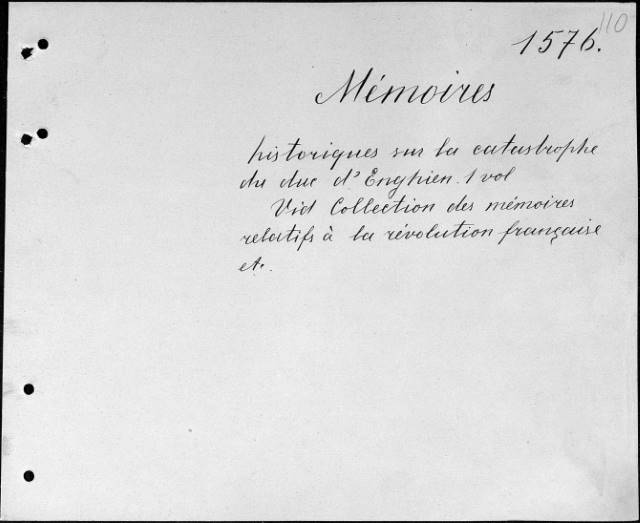 110
1576.
Mémoires
historiques sur la catastrophe
du duc d'Enghien. 1 vol
Vid Collection des mémoires
relatifs à la révolution française
etc.